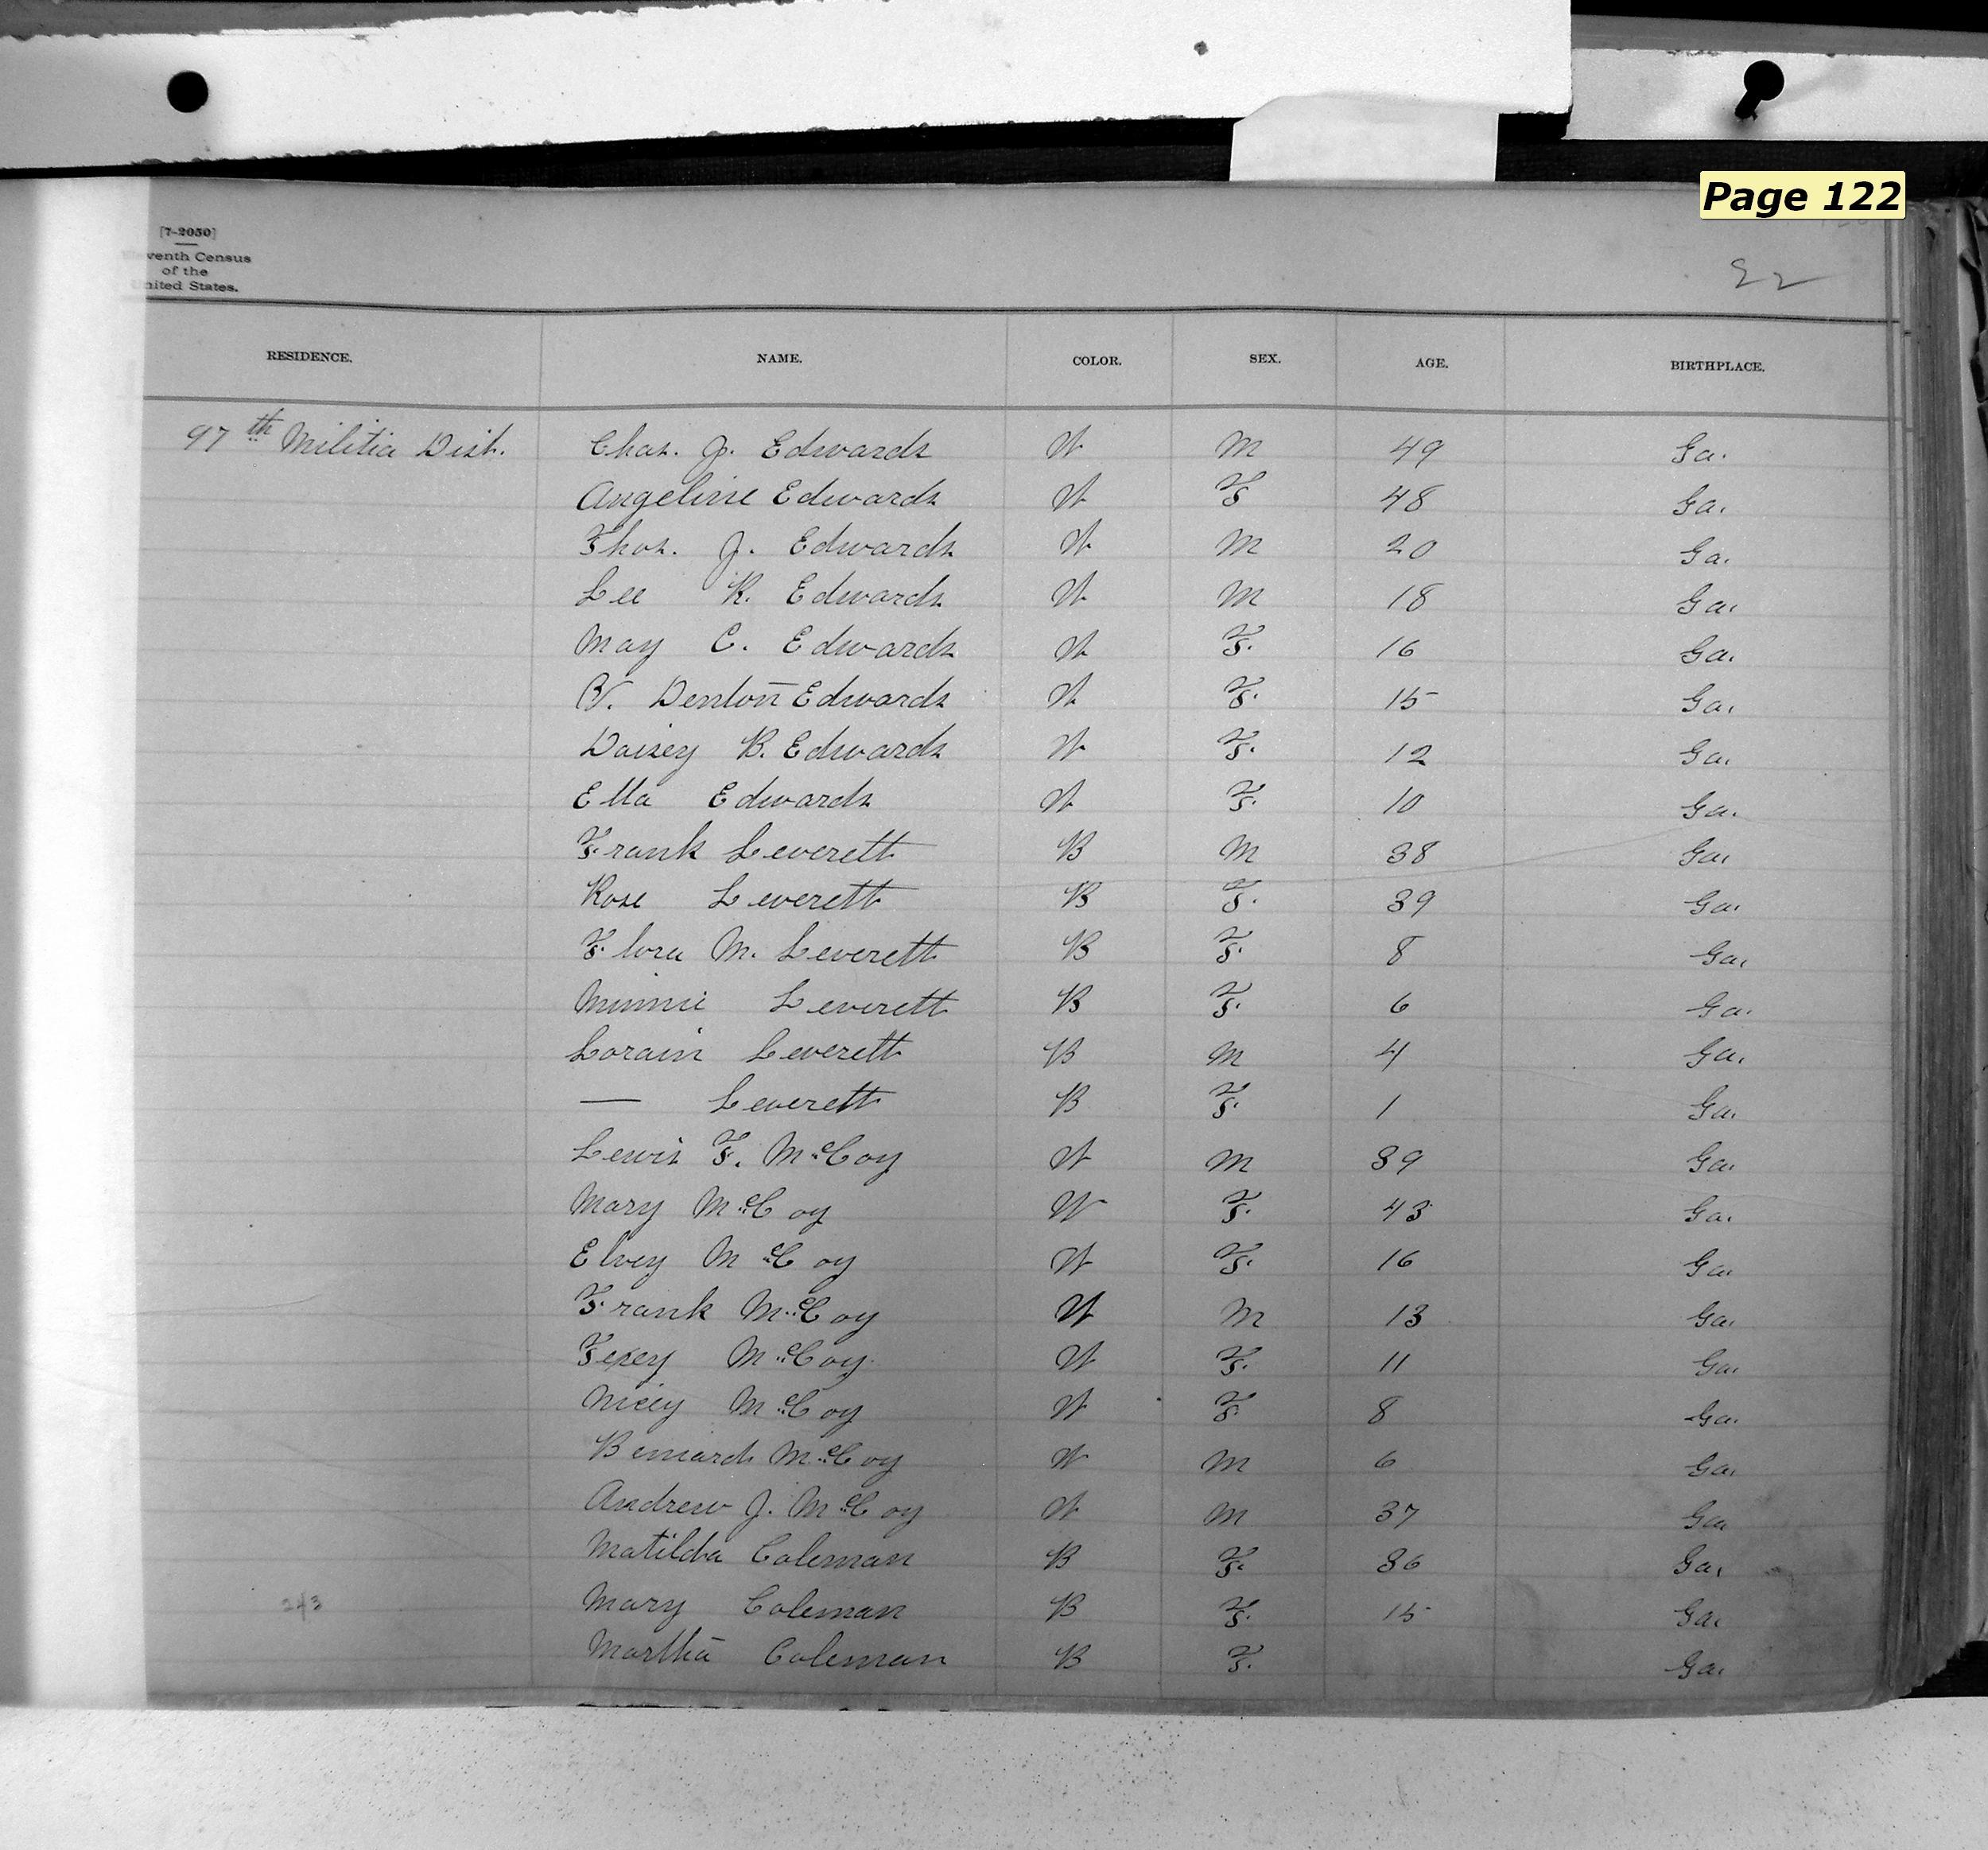 Page 122
[7-2050]
venth Census
of the
nited States.
22
RESIDENCE. NAME. COLOR. SEX. AGE. BIRTHPLACE.
97th Militia Dist. Chas. J. Edwards W M 49 Ga.
Angeline Edwards W F 48 Ga.
Thos. J. Edwards W M 20 Ga.
Lee R. Edwards W M 18 Ga.
May C. Edwards W F. 16 Ga.
Denton Edwards W F. 15 Ga.
Daisey B. Edwards W F. 12 Ga.
Ella Edwards W F. 10 Ga.
Frank Leverett B M 38 Ga.
Rose Leverett B F. 39 Ga.
Flora M. Leverett B F. 8 Ga.
Minnie Leverett B F. 6 Ga.
Lorain Leverett B M 4 Ga.
— Leverett B F. 1 Ga.
Lewis F. McCoy W M 39 Ga.
Mary McCoy W F. 43 Ga.
Elvey McCoy W F. 16 Ga.
Frank McCoy W M 13 Ga.
Texey McCoy W F. 11 Ga.
Nicey McCoy W F 8 Ga.
Bernard McCoy W M 6 Ga.
Andrew J. McCoy W M 37 Ga
Matilda Coleman B F. 36 Ga.
243 Mary Coleman B F. 15 Ga.
Martha Coleman B F. Ga.